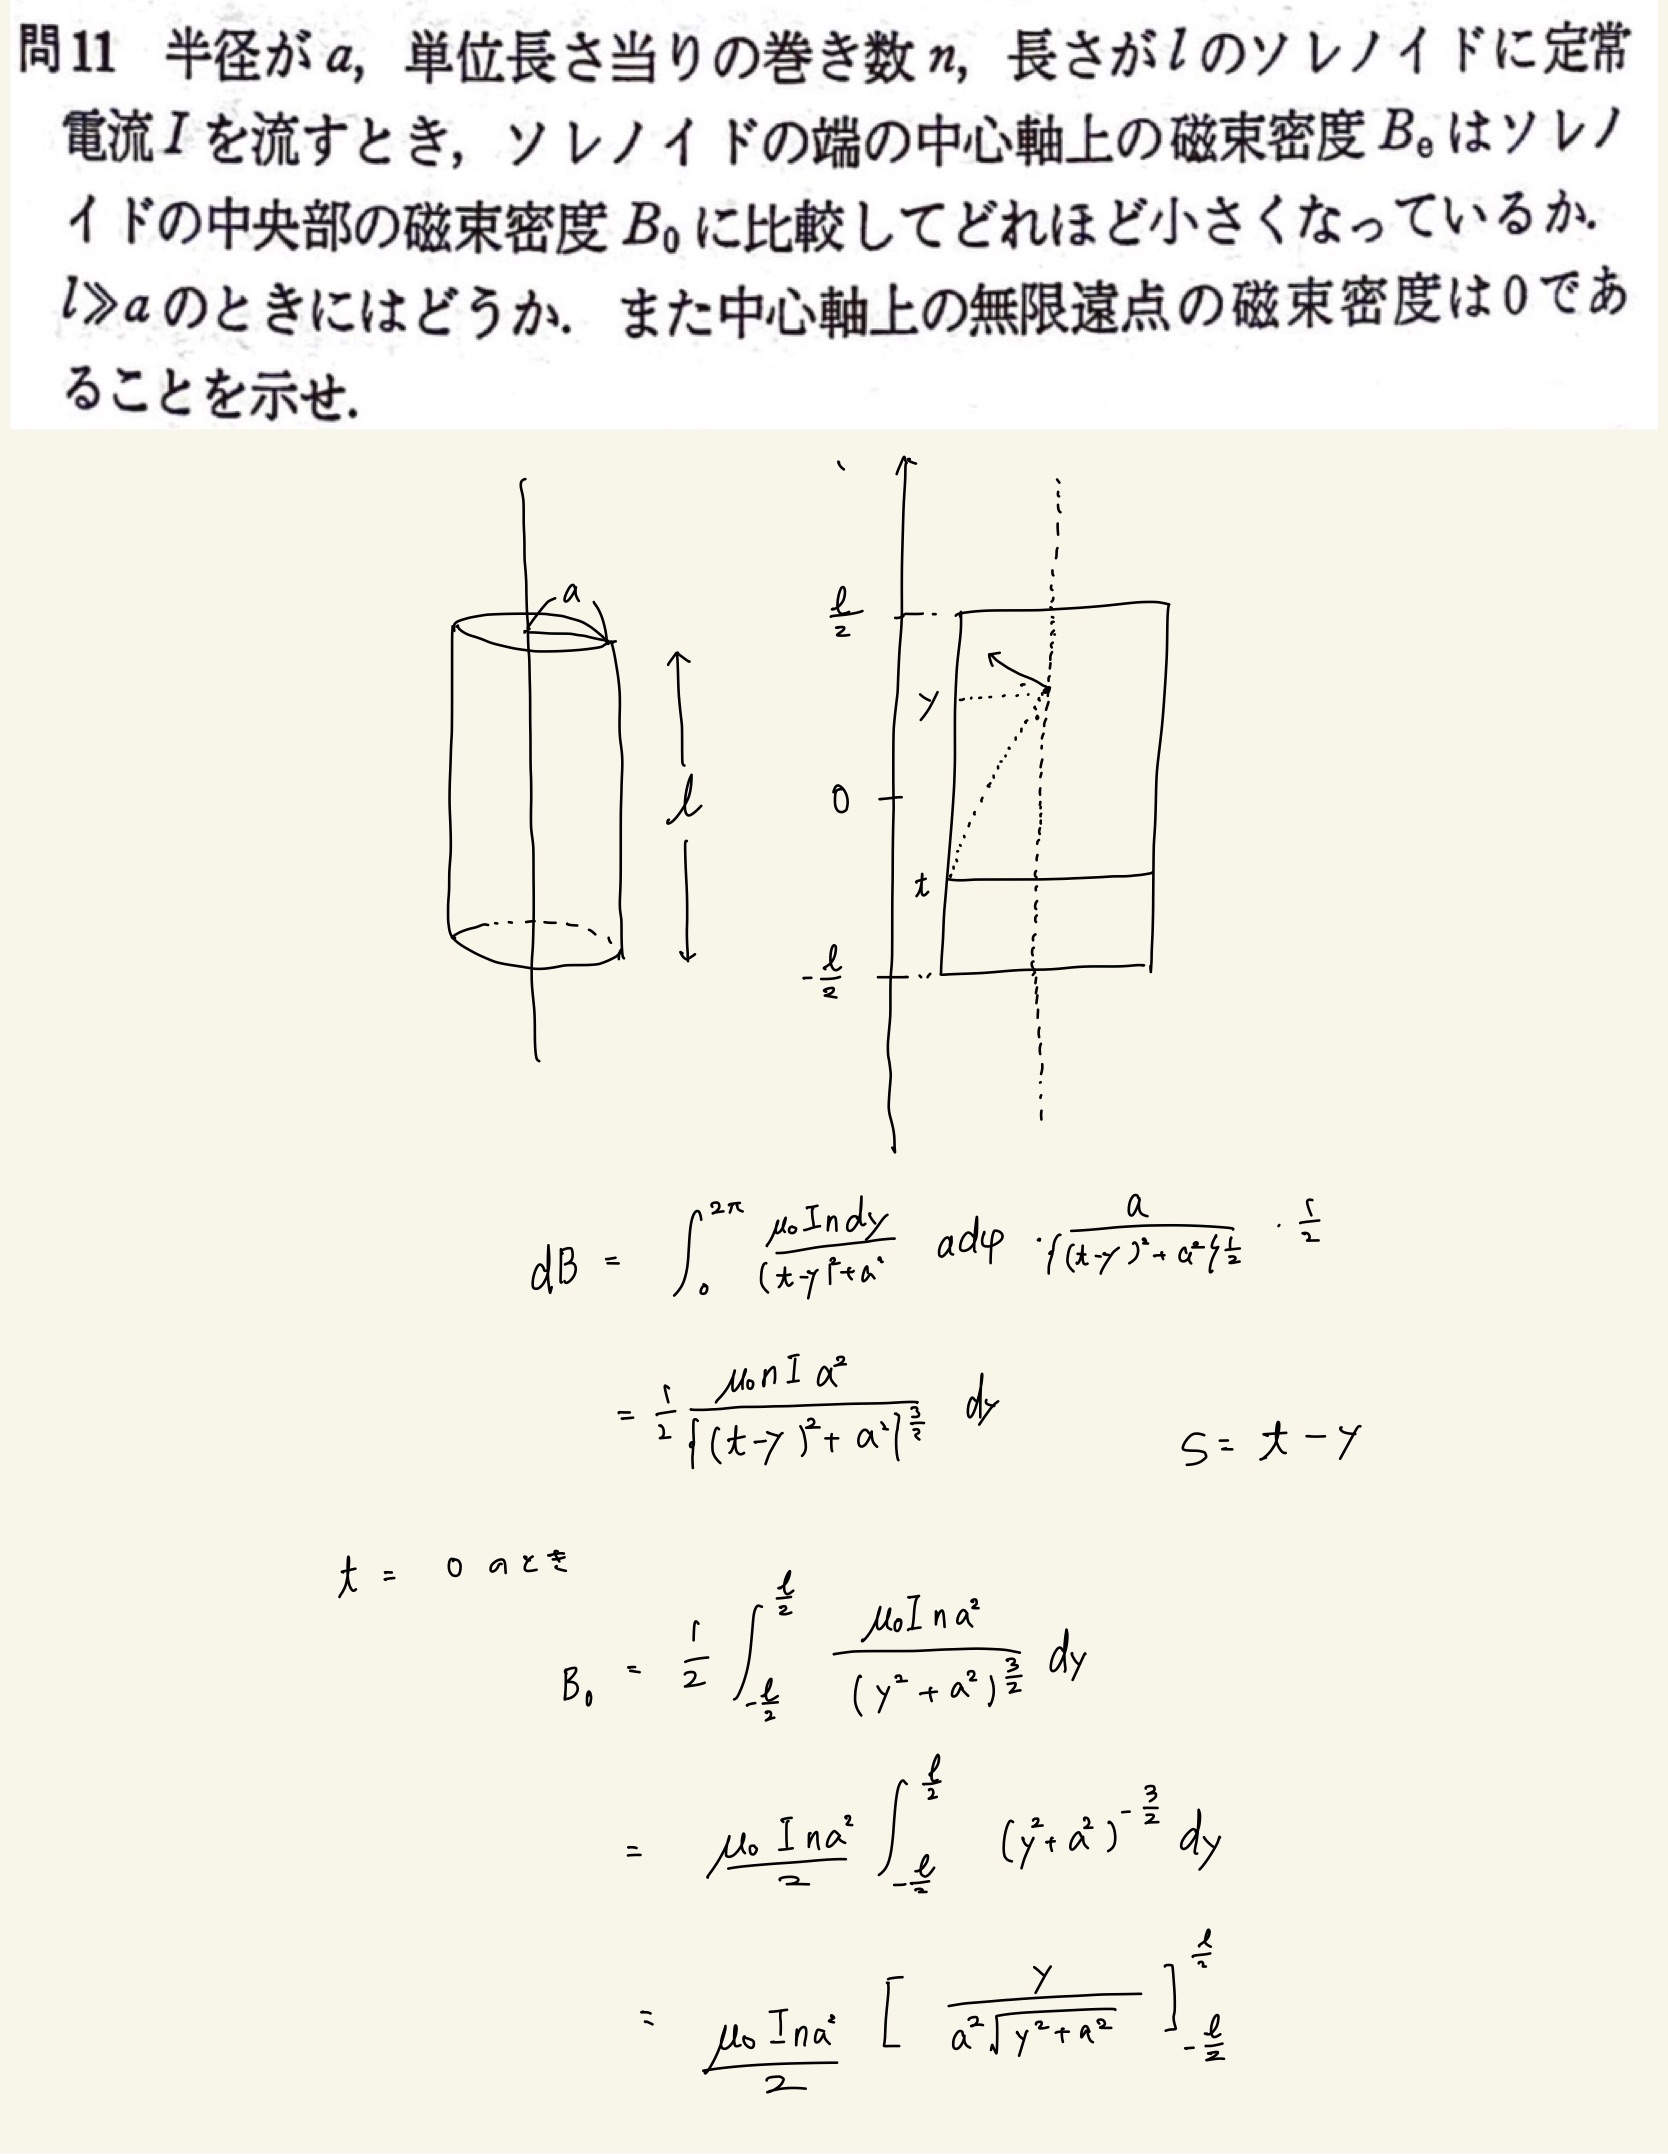 問11 半径がa, 単位長さ当りの巻き数n, 長さがlのソレノイドに定常
電流Iを流すとき, ソレノイドの端の中心軸上の磁束密度Bₑはソレノ
イドの中央部の磁束密度B₀に比較してどれほど小さくなっているか.
l≫aのときにはどうか. また中心軸上の無限遠点の磁束密度は0であ
ることを示せ.
a
l
l/2
y
0
t
-l/2
dB = ∫₀^{2π} μ₀Indy/((t-y)²+a²) adφ · a/{(t-y)²+a²}^{1/2} · 1/2
= 1/2 μ₀nIa²/{(t-y)²+a²}^{3/2} dy
S = t-y
t = 0 のとき
B₀ = 1/2 ∫_{-l/2}^{l/2} μ₀Ina²/(y²+a²)^{3/2} dy
= μ₀Ina²/2 ∫_{-l/2}^{l/2} (y²+a²)^{-3/2} dy
= μ₀Ina²/2 [ y/(a²√(y²+a²)) ]_{-l/2}^{l/2}